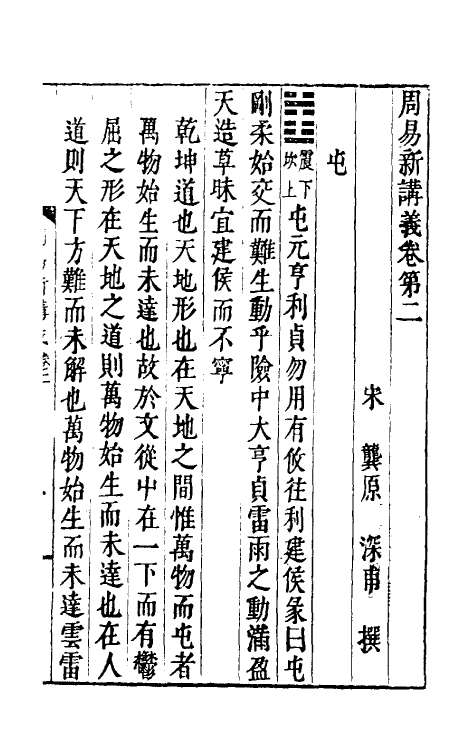 周易新講義卷第二
宋 龔原 深甫 撰
屯
震下
坎上
屯元亨利貞勿用有攸往利建侯彖曰屯
剛柔始交而難生動乎險中大亨貞雷雨之動滿盈
天造草昧宜建侯而不寧
乾坤道也天地形也在天地之間惟萬物而屯者
萬物始生而未達也故於文從屮在一下而有鬱
屈之形在天地之道則萬物始生而未達也在人
道則天下方難而未解也萬物始生而未達雲雷